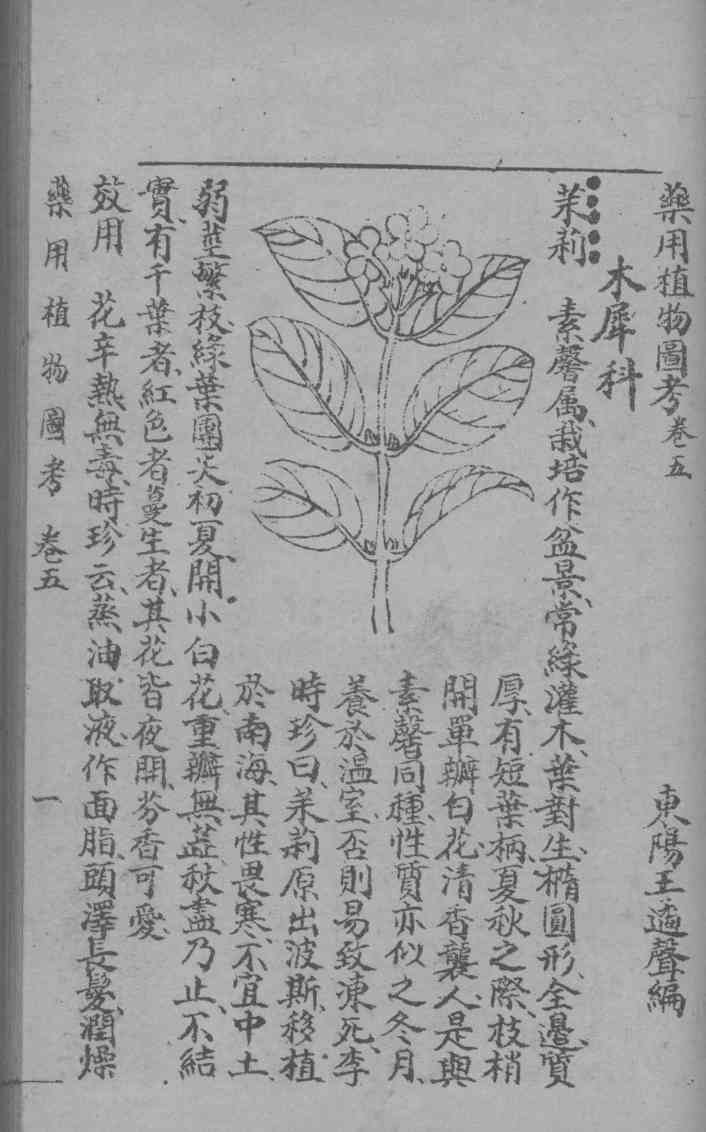 藥用植物圖考卷五
東陽王遹聲編
木犀科
茉莉 素馨属、栽培作盆景、常綠灌木、葉對生、橢圓形、全邊、質
厚、有短葉柄、夏秋之際、枝梢
開單瓣白花、清香襲人、是與
素馨同種、性質亦似之冬月、
養於溫室、否則易致凍死、李
時珍曰、茉莉原出波斯、移植
於南海、其性畏寒、不宜中土、
弱莖繁枝、綠葉團尖、初夏、開小白花、重瓣無蕋、秋盡乃止、不結
實、有千葉者、紅色者、蔓生者、其花皆夜開、芬香可愛、
效用 花辛熱無毒、時珍云、蒸油取液、作面脂、頭澤長髮、潤燥
藥用植物圖考 卷五 一